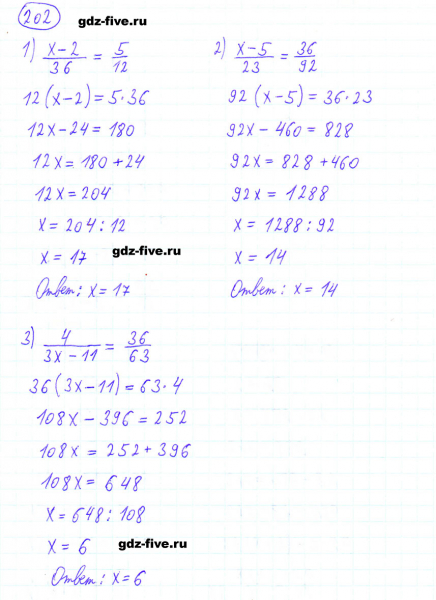 202 gdz-five.ru
1) (x-2)/36 = 5/12
12(x-2) = 5·36
12x-24 = 180
12x = 180+24
12x = 204
x = 204:12
x = 17
gdz-five.ru
Ответ: x = 17
2) (x-5)/23 = 36/92
92(x-5) = 36·23
92x - 460 = 828
92x = 828 + 460
92x = 1288
x = 1288 : 92
x = 14
Ответ: x = 14
3) 4/(3x-11) = 36/63
36(3x-11) = 63·4
108x - 396 = 252
108x = 252 + 396
108x = 648
x = 648 : 108
x = 6
gdz-five.ru
Ответ: x = 6